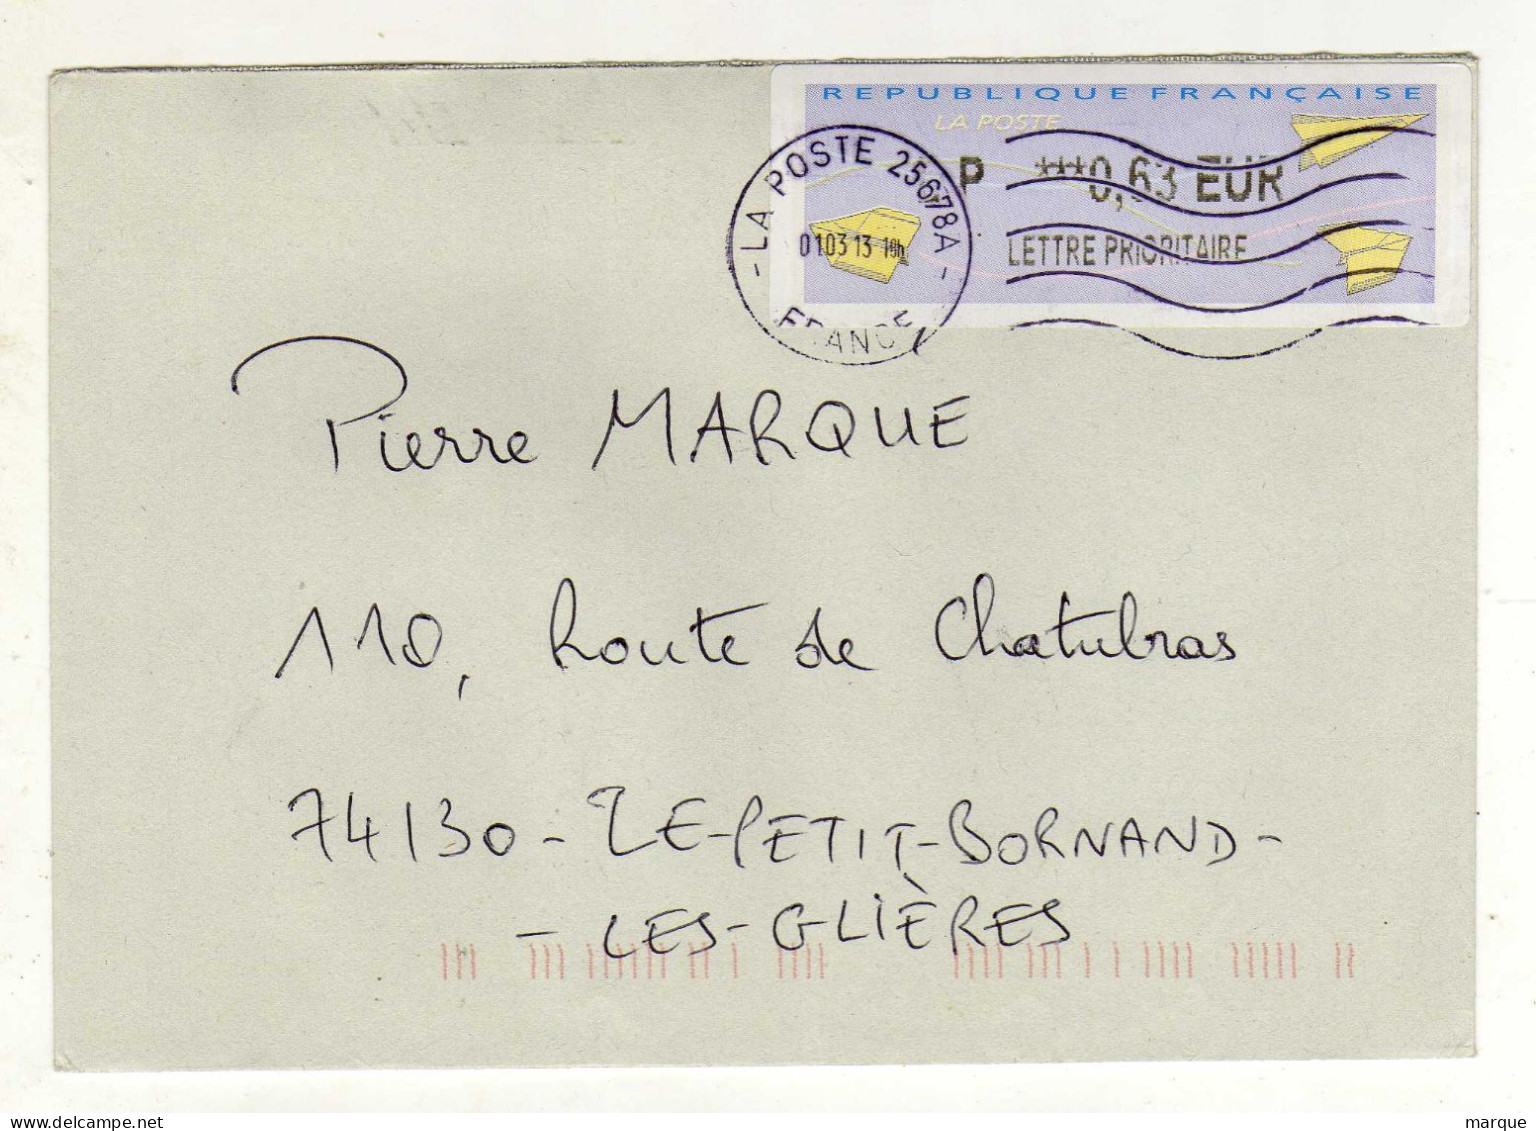 REPUBLIQUE FRANÇAISE
LA POSTE
P ***0,63 EUR
LETTRE PRIORITAIRE
- LA POSTE 25678A -
01.03 13 18h
FRANCE
Pierre MARQUE
110, Route de Chatubras
74130 - LE-PETIT-BORNAND-
- LES-GLIÈRES
marque